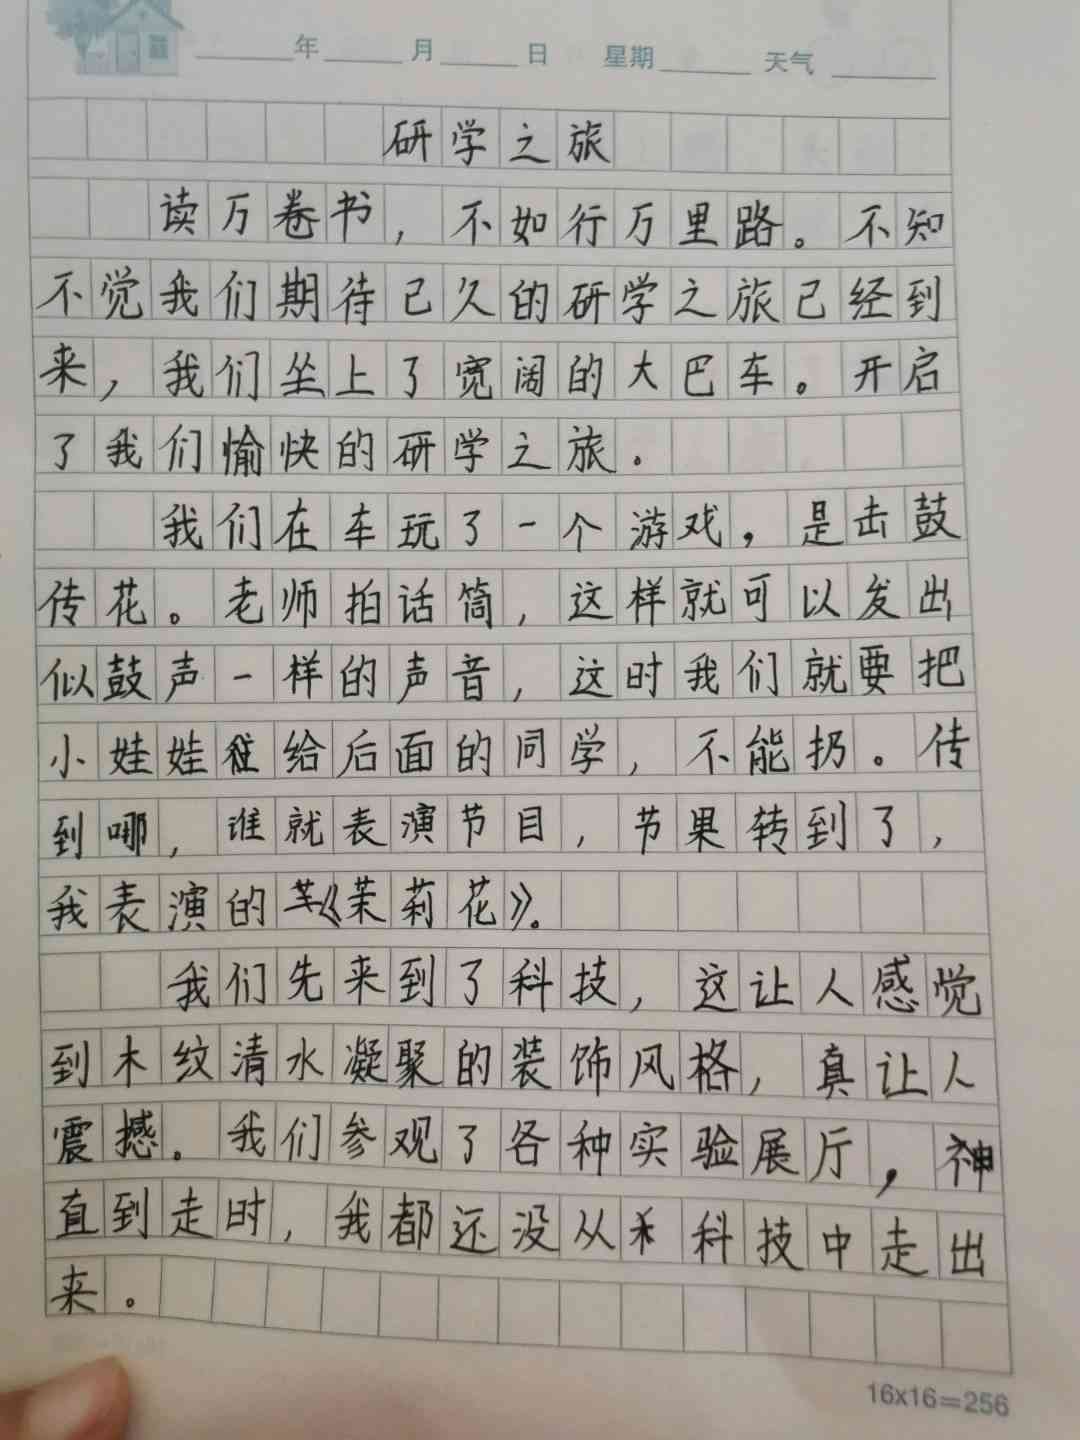 年 月 日 星期 天气
研学之旅
读万卷书，不如行万里路。不知
不觉我们期待已久的研学之旅已经到
来，我们坐上了宽阔的大巴车。开启
了我们愉快的研学之旅.
我们在车玩了一个游戏，是击鼓
传花。老师拍话筒，这样就可以发出
似鼓声一样的声音，这时我们就要把
小娃娃往给后面的同学，不能扔。传
到哪，谁就表演节目，节果转到了，
我表演的《茉莉花》。
我们先来到了科技，这让人感觉
到木纹清水凝聚的装饰风格，真让人
震撼。我们参观了各种实验展厅，神
直到走时，我都还没从科技中走出
来。
16x16=256